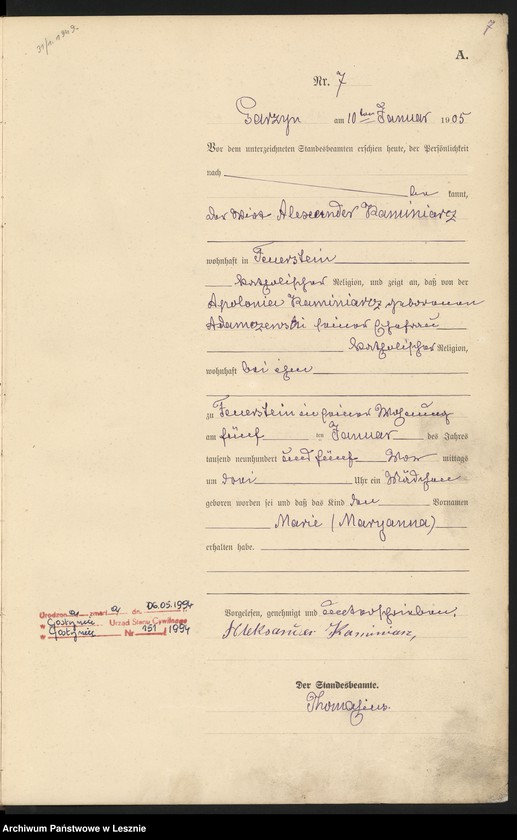 31/1. 1949.
7
A.
Nr. 7
Garzyn am 10ten Januar 1905
Vor dem unterzeichneten Standesbeamten erschien heute, der Persönlichkeit
nach
be kannt,
der Wirt Alexander Kaminiarz
wohnhaft in Feuerstein
katholischer Religion, und zeigt an, daß von der
Apolonia Kaminiarz geborenen
Adamczewski seiner Ehefrau
katholischer Religion,
wohnhaft bei ihm
zu Feuerstein in seiner Wohnung
am fünf ten Januar des Jahres
tausend neunhundert und fünf Vor mittags
um drei Uhr ein Mädchen
geboren worden sei und daß das Kind den Vornamen
Marie (Maryanna)
erhalten habe.
Urodzon a zmarł a dn. 06.05.1994
w Gostyniu Urząd Stanu Cywilnego
w Gostyniu Nr 151 / 1994
Vorgelesen, genehmigt und unterschrieben.
Aleksander Kaminiarz,
Der Standesbeamte.
Archiwum Państwowe w Lesznie